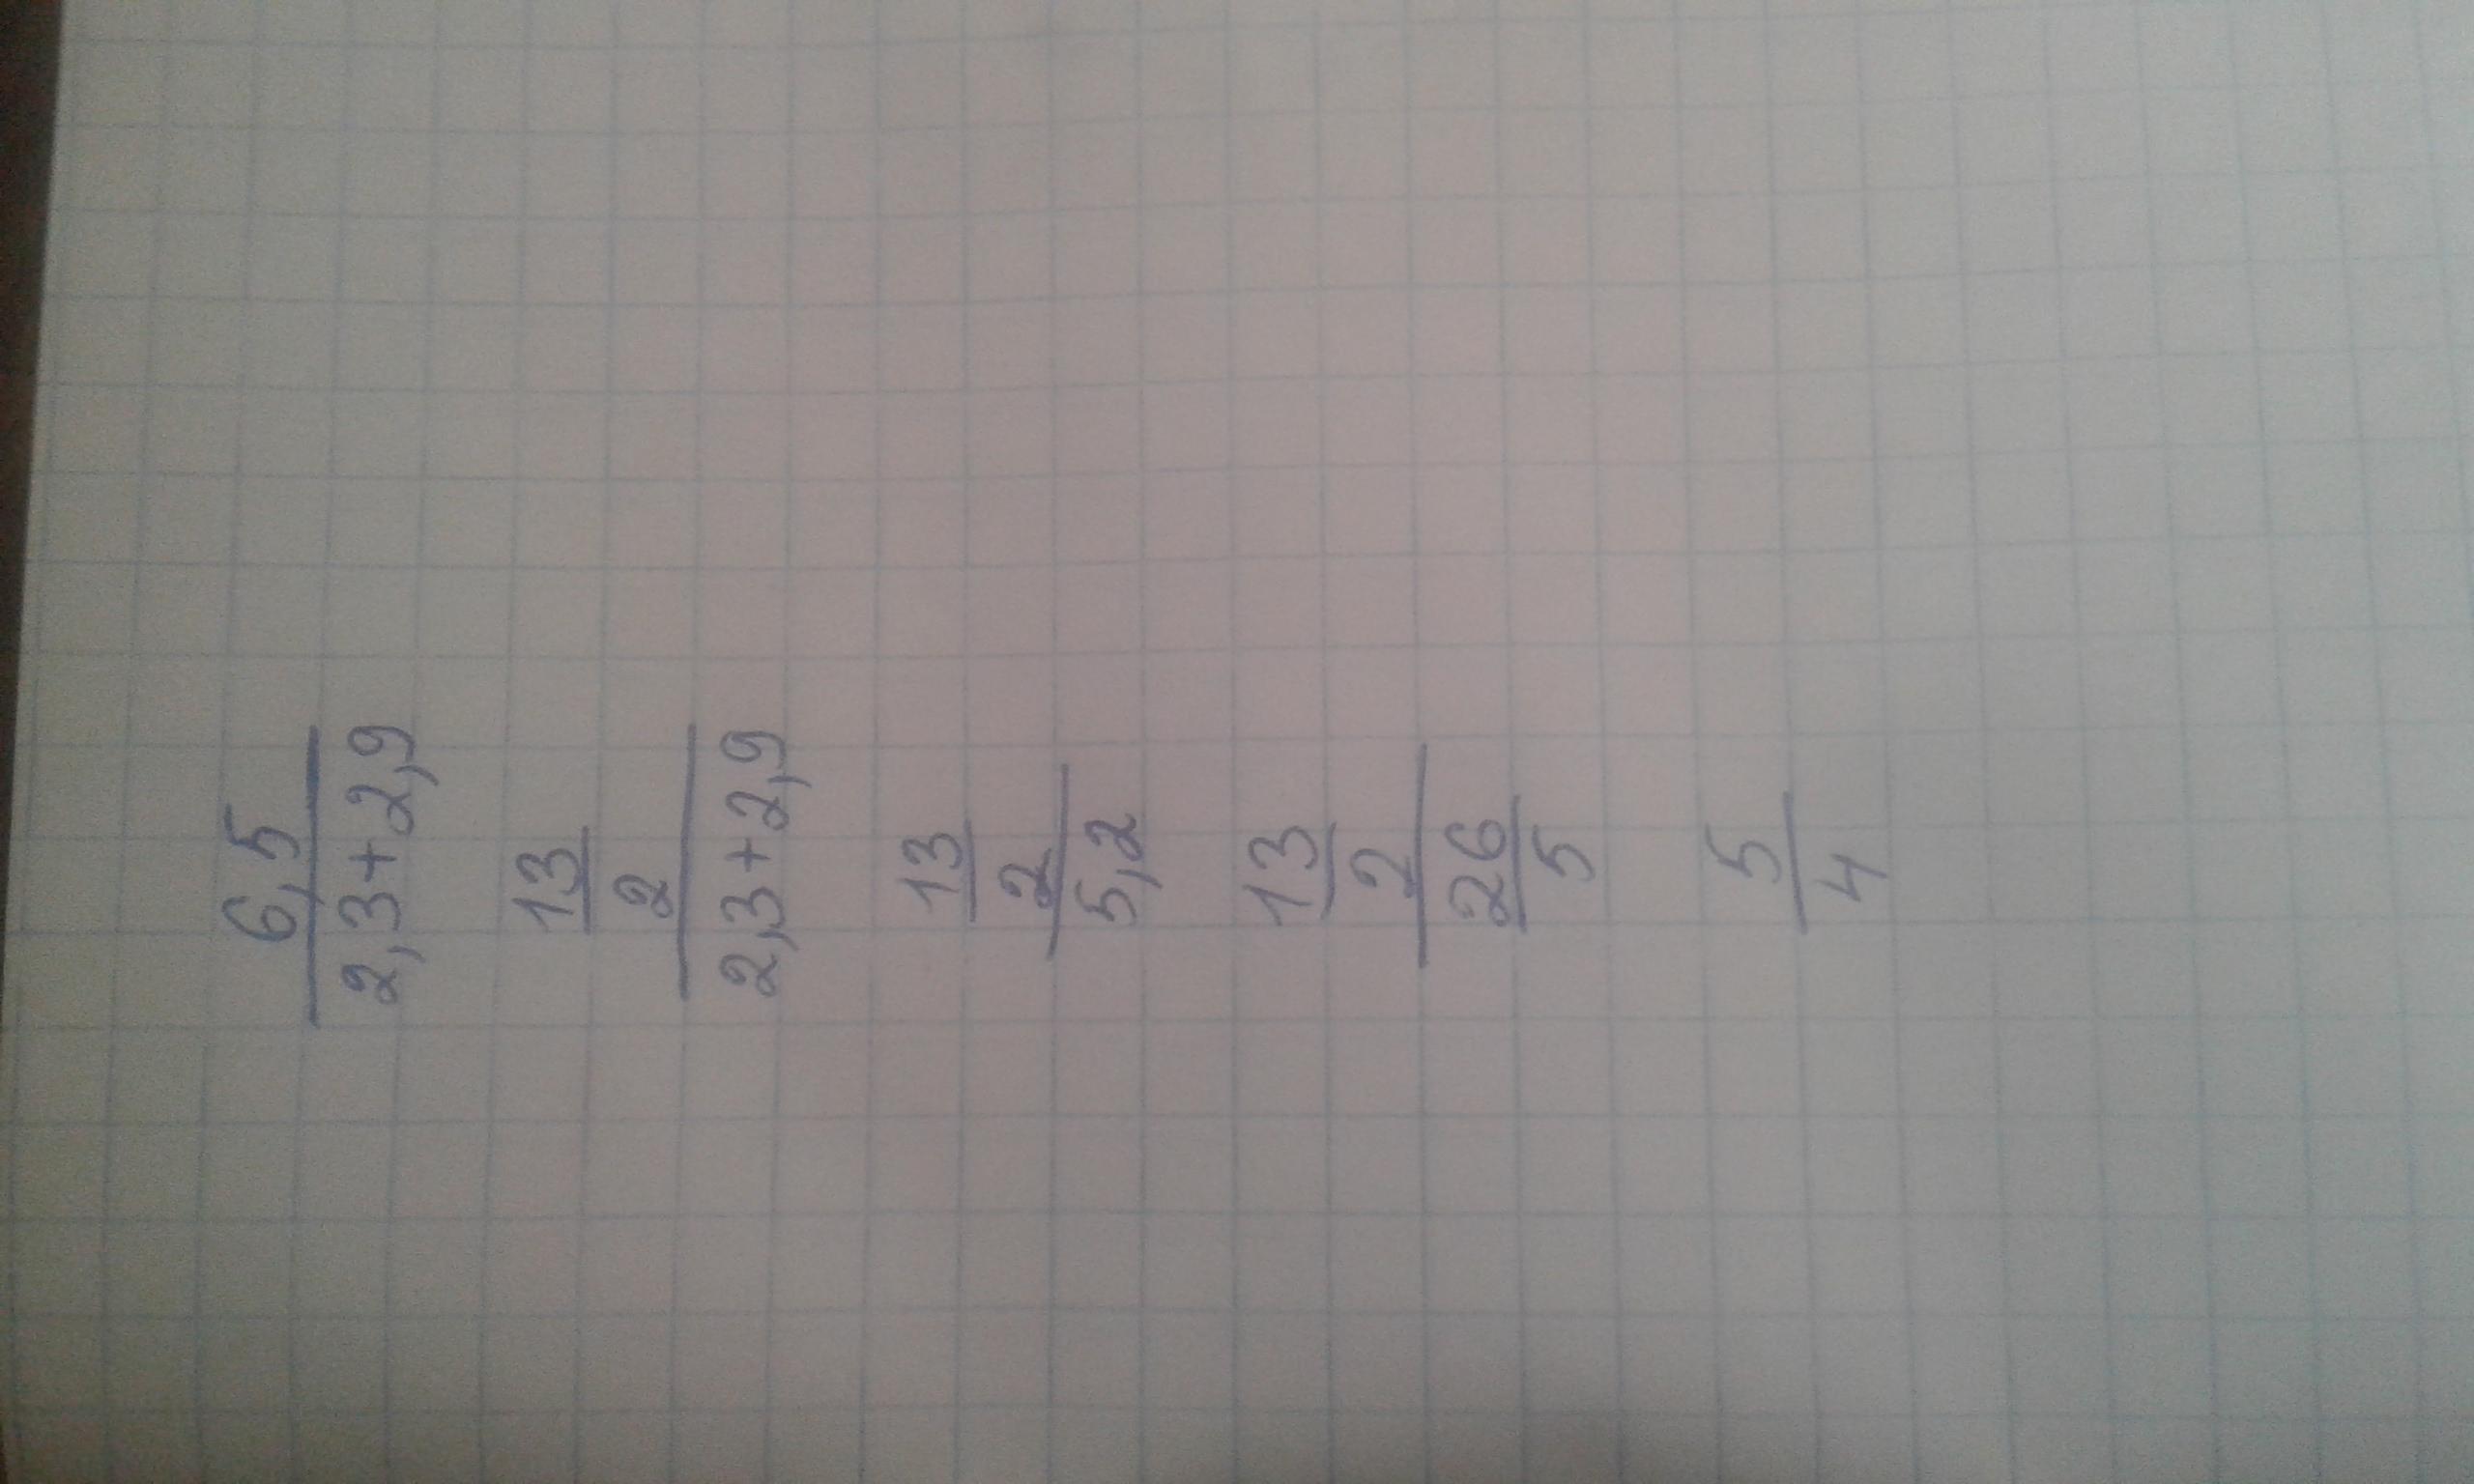 6,5
2,3+2,9
13
2
2,3+2,9
13
2
5,2
13
2
26
5
5
4